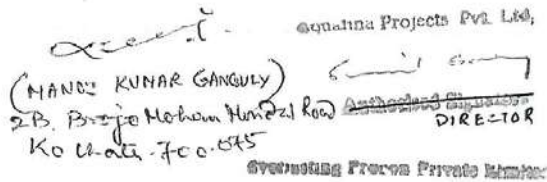 (MANOJ KUMAR GANGULY)
2B. Brojo Mohan Mondal Road
Kolkata-700.075
Projects Pvt. Ltd,
Authorised Signatory
DIRECTOR
Private Limited